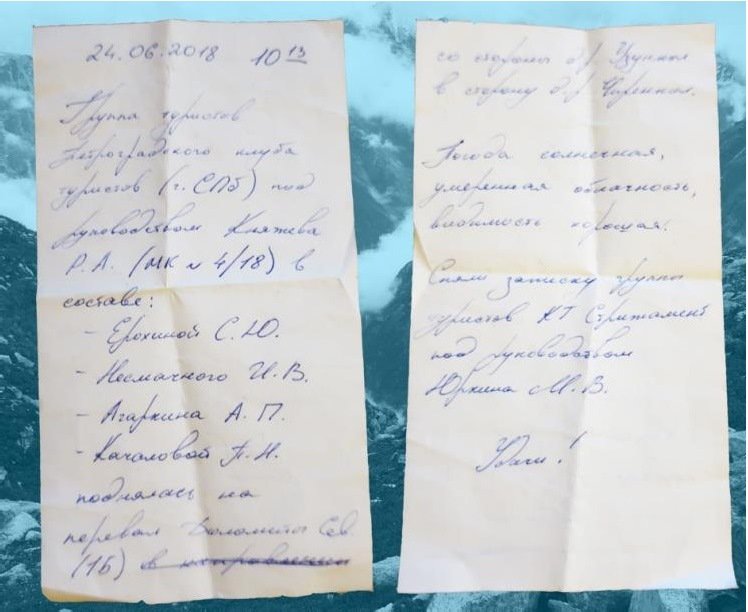 24.06.2018 10 13
Группа туристов
Петроградского клуба
туристов (г. СПб) под
руководством Княжева
Р.А. (мк № 4/18) в
составе:
- Ерохиной С.Ю.
- Несмачного И.В.
- Агаркина А.П.
- Качаловой П.Н.
поднялась на
перевал Доломиты Сев.
(1Б) в направлении
со стороны д.р. Узункол
в сторону д.р.
Погода солнечная,
умеренная облачность,
видимость хорошая.
Сняли записку группы
туристов КТ Стрижамент
под руководством
Юркина М.В.
Удачи!